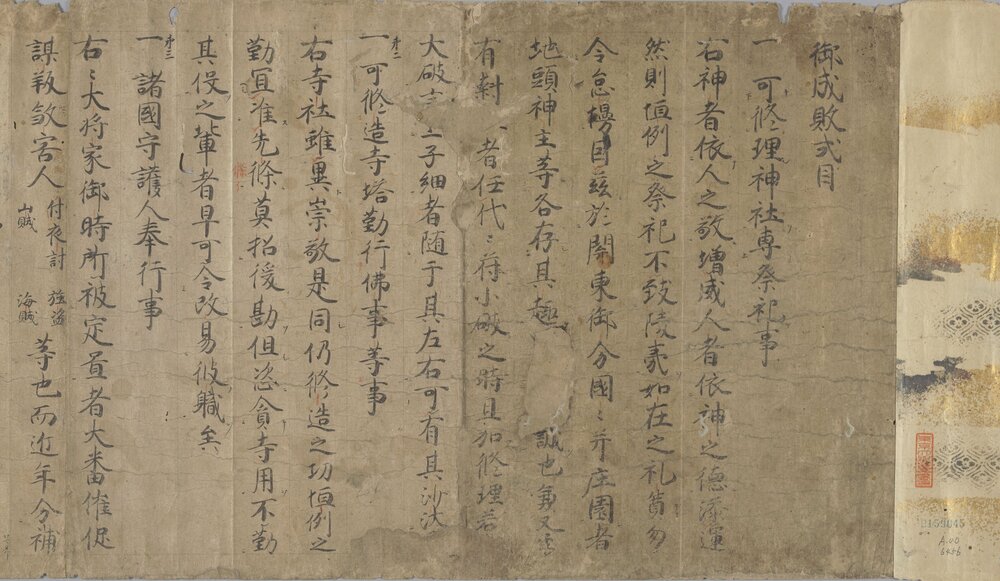 御成敗式目
一 可修理神社専祭祀事
右神者依人之敬増威人者依神之徳添運
然則恒例之祭祀不致陵夷如在之礼奠勿
令怠慢因茲於關東御分國〻并庄園者
地頭神主等各存其趣 誠也兼又
有封 者任代〻符小破之時且加修理若
大破言上子細者随于其左右可有其沙汰
一 可修造寺塔勤行佛事等事
右寺社雖異崇敬是同仍修造之功恒例之
勤宜准先條莫招後勘但恣貪寺用不勤
其役之輩者早可令改易彼職矣
一 諸國守護人奉行事
右〻大将家御時所被定置者大番催促
謀叛敘害人 付夜討 強盗 山賊 海賊 等也而近年分補
2159845
A.00
6456